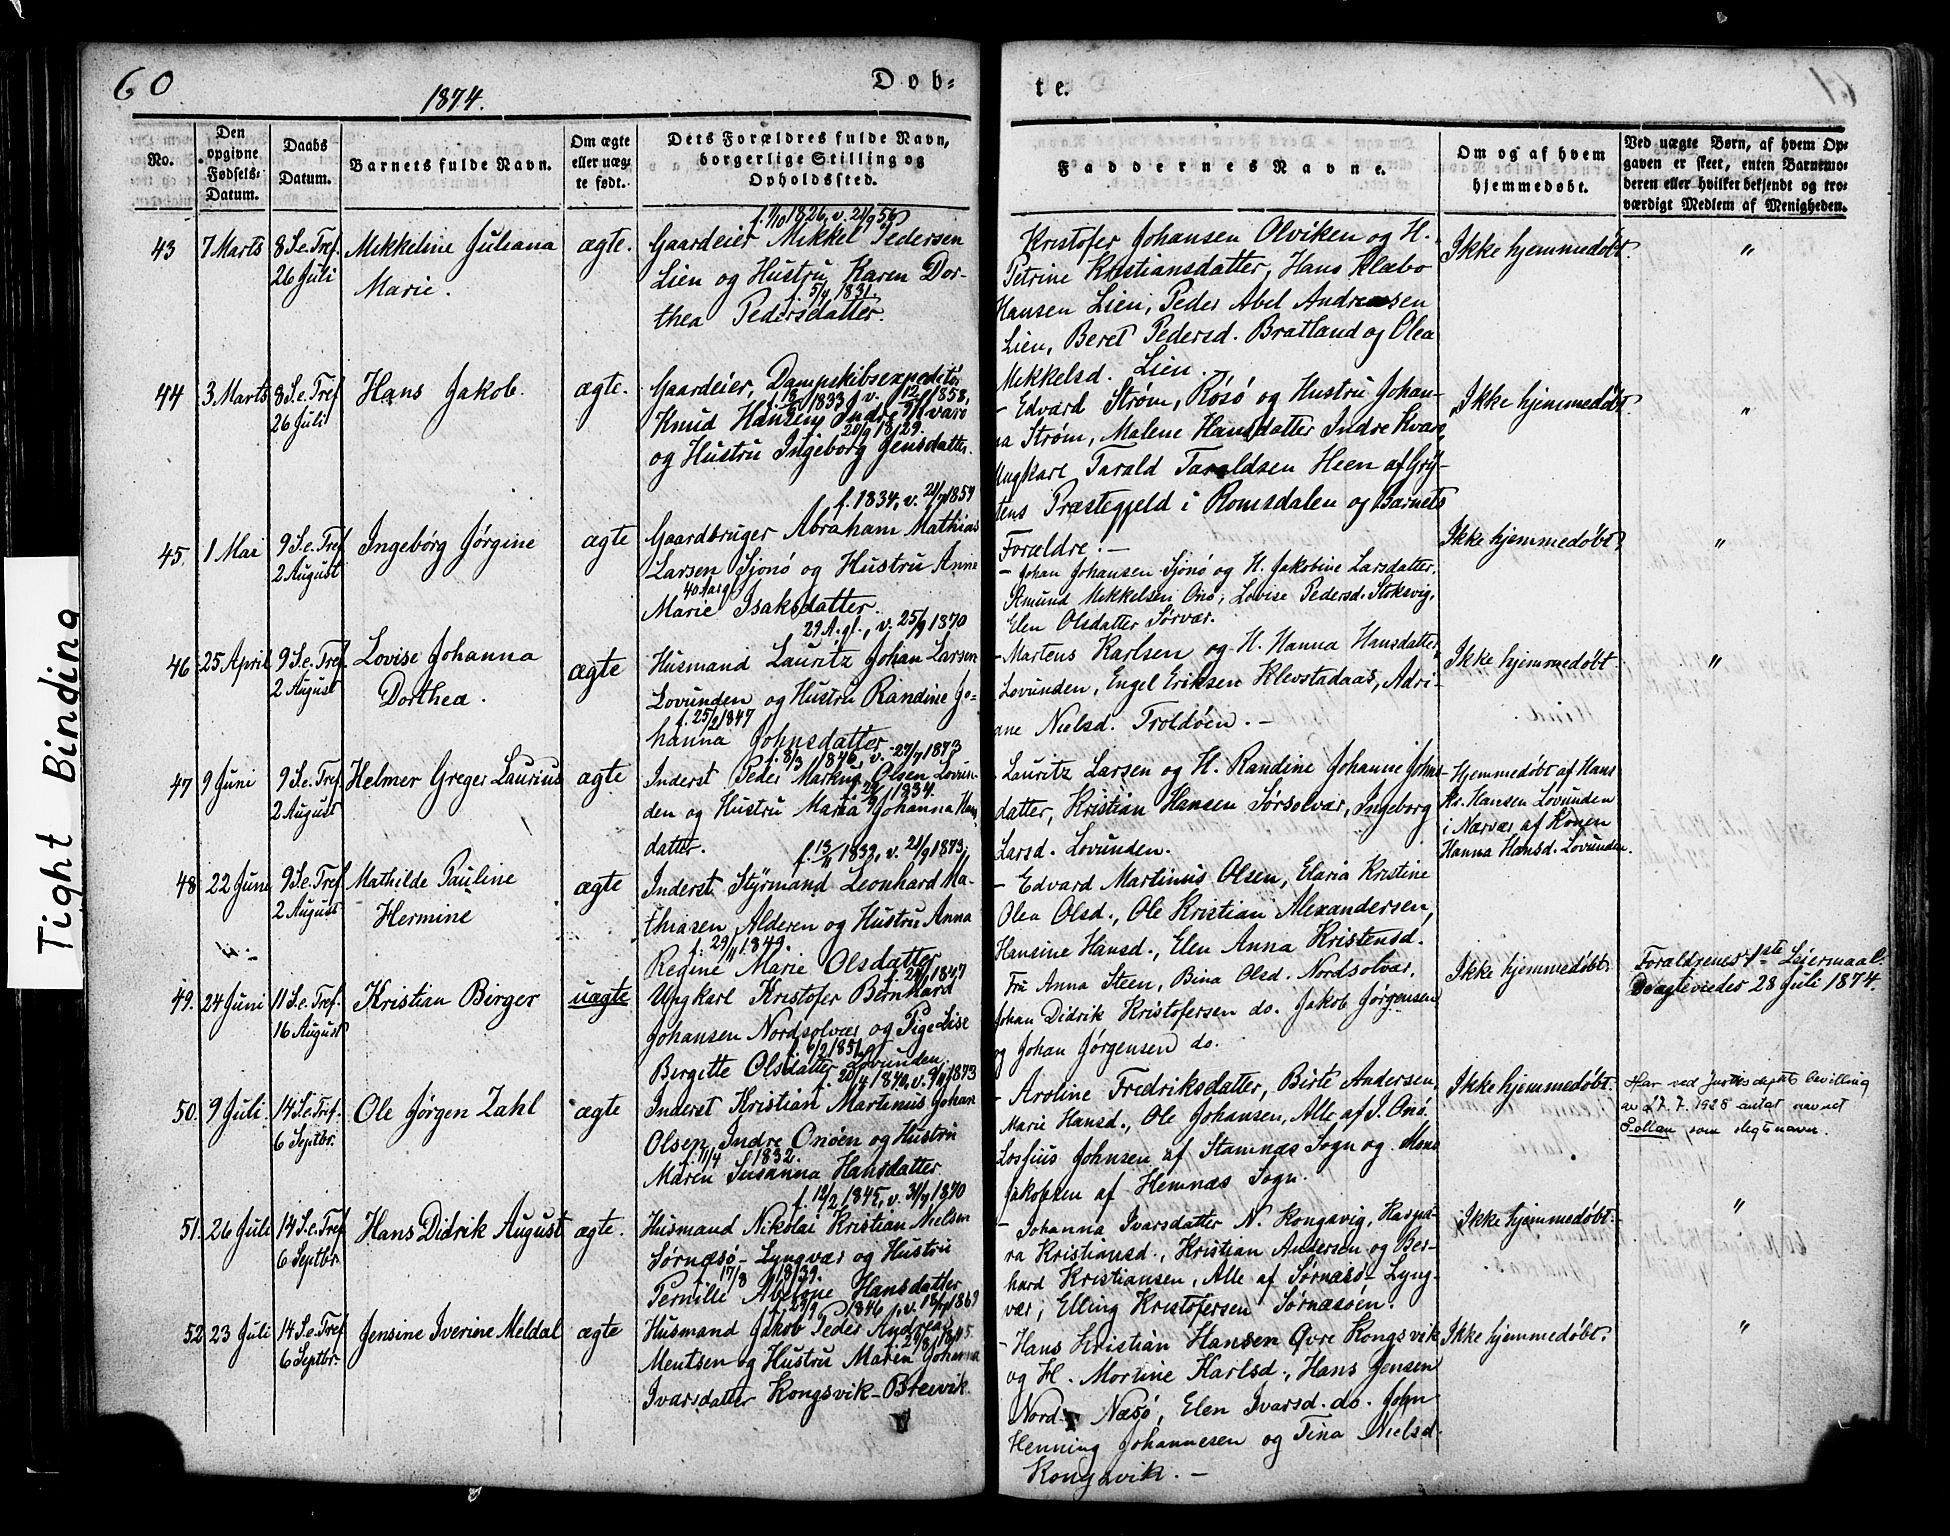 60
1874.
Døb-
te.
61
No.
Den opgivne Fødsels-Datum.
Daabs Datum.
Barnets fulde Navn.
Om ægte eller uæg-te født.
Dets Forældres fulde Navn, borgerlige Stilling og Opholdssted.
Faddernes Navne.
Om og af hvem hjemmedøbt.
Ved uægte Børn, af hvem Op-
gaven er skeet, enten Barnemo-
deren eller hvilket bekjendt og tro-
værdigt Medlem af Menigheden.
43 7 Marts 8 S. e. Tref. 26 Juli
Mikkeline Juliana
Marie.
ægte.
f. 1/10 1826, v. 21/9 56
Gaardeier Mikkel Pedersen
Lien og Hustru Karen Dor-
f. 5/4 1831.
thea Pedersdatter.
Kristofer Johansen Olviken og H.
Petrine Kristiansdatter, Hans Klæbo
Hansen Lien, Peder Abel Andreasen
Lien, Beret Pedersd. Bratland og Olea
Mikkelsd. Lien.
Ikke hjemmedøbt.
"
44 3 Marts 8 S. e. Tref. 26 Juli
Hans Jakob.
ægte.
Gaardeier, Dampskibsexpeditør
Knud Hansen Indre Kvarø
og Hustru Ingeborg Jensdatter.
- Edvard Strøm, Røsø og Hustru Johan-
na Strøm, Malene Hansdatter Indre Kvarø,
Ungkarl Tarald Taraldsen Heen af Gry-
tens Præstegjeld i Romsdalen og Barnets
Forældre. -
Ikke hjemmedøbt.
"
45. 1 Mai 9 S. e. Tref. 2 August
Ingeborg Jørgine
ægte
f. 1834, v. 21/7 1859
Gaardbruger Abraham Mathias
Larsen Sjonø og Hustru Anne
40 Aarg.
Marie Isaksdatter.
- Johan Johansen Sjonø og H. Jakobine Larsdatter,
Amund Mikkelsen Onø, Lovise Pedersd. Stoksvig,
Elen Olsdatter Sørvær.
Ikke hjemmedøbt.
"
46 25 April 9 S. e. Tref. 2 August
Lovise Johanna
Dorthea.
ægte
29 A. gl., v. 25/9 1870
Husmand Lauritz Johan Larsen
Lovunden og Hustru Randine Jo-
f. 25/2 1847
hanna Johnsdatter
- Martens Karlsen og H. Hanna Hansdatter,
Lovunden, Engel Eriksen Klevstadaas, Adri-
ane Nielsd. Troldøen. -
Ikke hjemmedøbt
"
47 9 Juni 9 S. e. Tref. 2 August
Helmer Greger Laurius
ægte
f. 8/3 1846, v. 27/7 1873
Inderst Peder Markus Olsen Lovun-
den og Hustru Maria Johanna Hans
datter.
- Lauritz Larsen og H. Randine Johanne Johns
datter, Kristian Hansen Sørsolvær, Ingeborg
Larsd. Lovunden.
Hjemmedøbt af Hans
Kr. Hansen Lovunden
i Nærvær af Konen
Hanna Hansd. Lovunden.
48 22 Juni 9 S. e. Tref. 2 August
Mathilde Pauline
Hermine
ægte
f. 13/11 1839, v. 21/9 1873,
Inderst Styrmand Leonhard Ma-
thiasen Alderen og Hustru Anna
f. 29/11 1849.
Regine Marie Olsdatter
- Edvard Martinus Olsen, Elaria Kristine
Olea Olsd., Ole Kristian Alexandersen,
Hansine Hansd., Elen Anna Kristensd.
49. 24 Juni 11 S. e. Tref. 16 August
Kristian Birger
uægte
Ungkarl Kristofer Bernhard
Johansen Nordsolvær og Pige Lise
f. 6/2 1851
Birgitte Olsdatter Lovunden.
Fru Anna Steen, Bina Olsd. Nordsolvær,
Johan Didrik Kristofersen do. Jakob Jørgensen
og Johan Jørgensen do.
Ikke hjemmedøbt.
Forældrenes 1ste Leiermaal.
28 Juli 1874.
50. 9 Juli. 14 S. e. Tref. 6 Septbr.
Ole Jørgen Zahl
ægte
f. 20/4 1840, v. 9/11 1873
Inderst Kristian Martinus Johan
Olsen, Indre Onøen og Hustru
f. 11/4 1832.
Maren Susanna Hansdatter
- Aroline Fredriksdatter, Birte Andersen,
Marie Hansd., Ole Johansen, Alle af I. Onø.
Losfius Johnsen af Stamnæs Sogn og Mons
Jakobsen af Hemnæs Sogn.
Ikke hjemmedøbt.
Har ved Justisdepts bevilling
av 17. 7. 1928 antat navnet
Sollan som slegtsnavn.
51. 26 Juli 14 S. e. Tref. 6 Septbr.
Hans Didrik August
ægte.
f. 12/2 1845, v. 31/7 1870
Husmand Nikolai Kristian Nielsen
Sørnæsø-Lyngvær og Hustru
f. 17/8 1839.
Pernille Abelone Hansdatter
- Johanna Ivarsdatter N. Kongsvig, Haspa-
ra Kristiansd., Kristian Andersen og Ber-
hard Kristiansen, Alle af Sørnæsø-Lyng-
vær, Elling Kristofersen Sørnæsøen.
Ikke hjemmedøbt.
"
52 23 Juli 14 S. e. Tref. 6 Septbr.
Jensine Iverine Meldal
ægte
Husmand Jakob Peder Andreas
Mentsen og Hustru Maren Johanna
Ivarsdatter Kongsvik-Breivik.
- Hans Kristian Hansen Øvre Kongsvik
og H. Mortine Karlsd., Hans Jensen
Nord- Næsø, Elen Ivarsd. do. John
Henning Johannesen og Tina Nielsd.
Kongsvik. -
Ikke hjemmedøbt.
"
Tight Binding